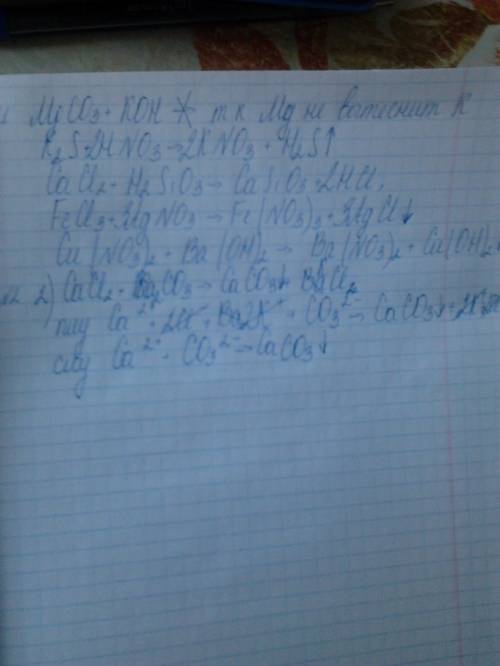 MgCO₃ + KOH ⁎ т к Mg не вытеснит K
K₂S + 2HNO₃ → 2KNO₃ + H₂S↑
CaCl₂ + H₂SiO₃ → CaSiO₃ + 2HCl,
FeCl₃ + 3AgNO₃ → Fe(NO₃)₃ + 3AgCl↓
Cu(NO₃)₂ + Ba(OH)₂ → Ba(NO₃)₂ + Cu(OH)₂
2) CaCl₂ + CO₃ → CaCO₃↓
пиу Ca²⁺ + + CO₃²⁻ → CaCO₃↓ +
сиу Ca²⁺ + CO₃²⁻ → CaCO₃↓